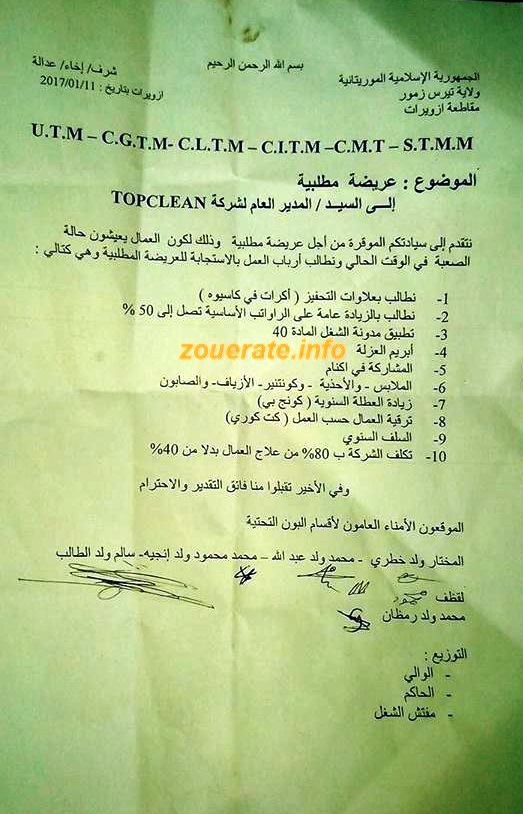 بسم الله الرحمن الرحيم
الجمهورية الإسلامية الموريتانية
شرف/ إخاء/ عدالة
ولاية تيرس زمور
ازويرات بتاريخ : 2017/01/11
مقاطعة ازويرات
U.T.M – C.G.T.M- C.L.T.M – C.I.T.M –C.M.T – S.T.M.M
الموضوع : عريضة مطلبية
إلـى السيـد / المدير العام لشركة TOPCLEAN
نتقدم إلى سيادتكم الموقرة من أجل عريضة مطلبية وذلك لكون العمال يعيشون حالة
الصعبة في الوقت الحالي ونطالب أرباب العمل بالاستجابة للعريضة المطلبية وهي كتالي :
1- نطالب بعلاوات التحفيز ( أكرات في كاسيوه )
2- نطالب بالزيادة عامة على الراواتب الأساسية تصل إلى 50 %
3- تطبيق مدونة الشغل المادة 40
4- أبريم العزلة
zouerate.info
5- المشاركة في اكنام
6- الملابس - والأحذية - وكونتنير- الأزياف- والصابون
7- زيادة العطلة السنوية ( كونج بي)
8- ترقية العمال حسب العمل ( كت كوري)
9- السلف السنوي
10- تكلف الشركة ب 80% من علاج العمال بدلا من 40%
وفي الأخير تقبلوا منا فائق التقدير والاحترام
الموقعون الأمناء العامون لأقسام البون التحتية
المختار ولد خطري - محمد ولد عبد الله – محمد محمود ولد إنجيه- سالم ولد الطالب
لقظف
محمد ولد رمظان
التوزيع :
- الوالي
- الحاكم
- مفتش الشغل